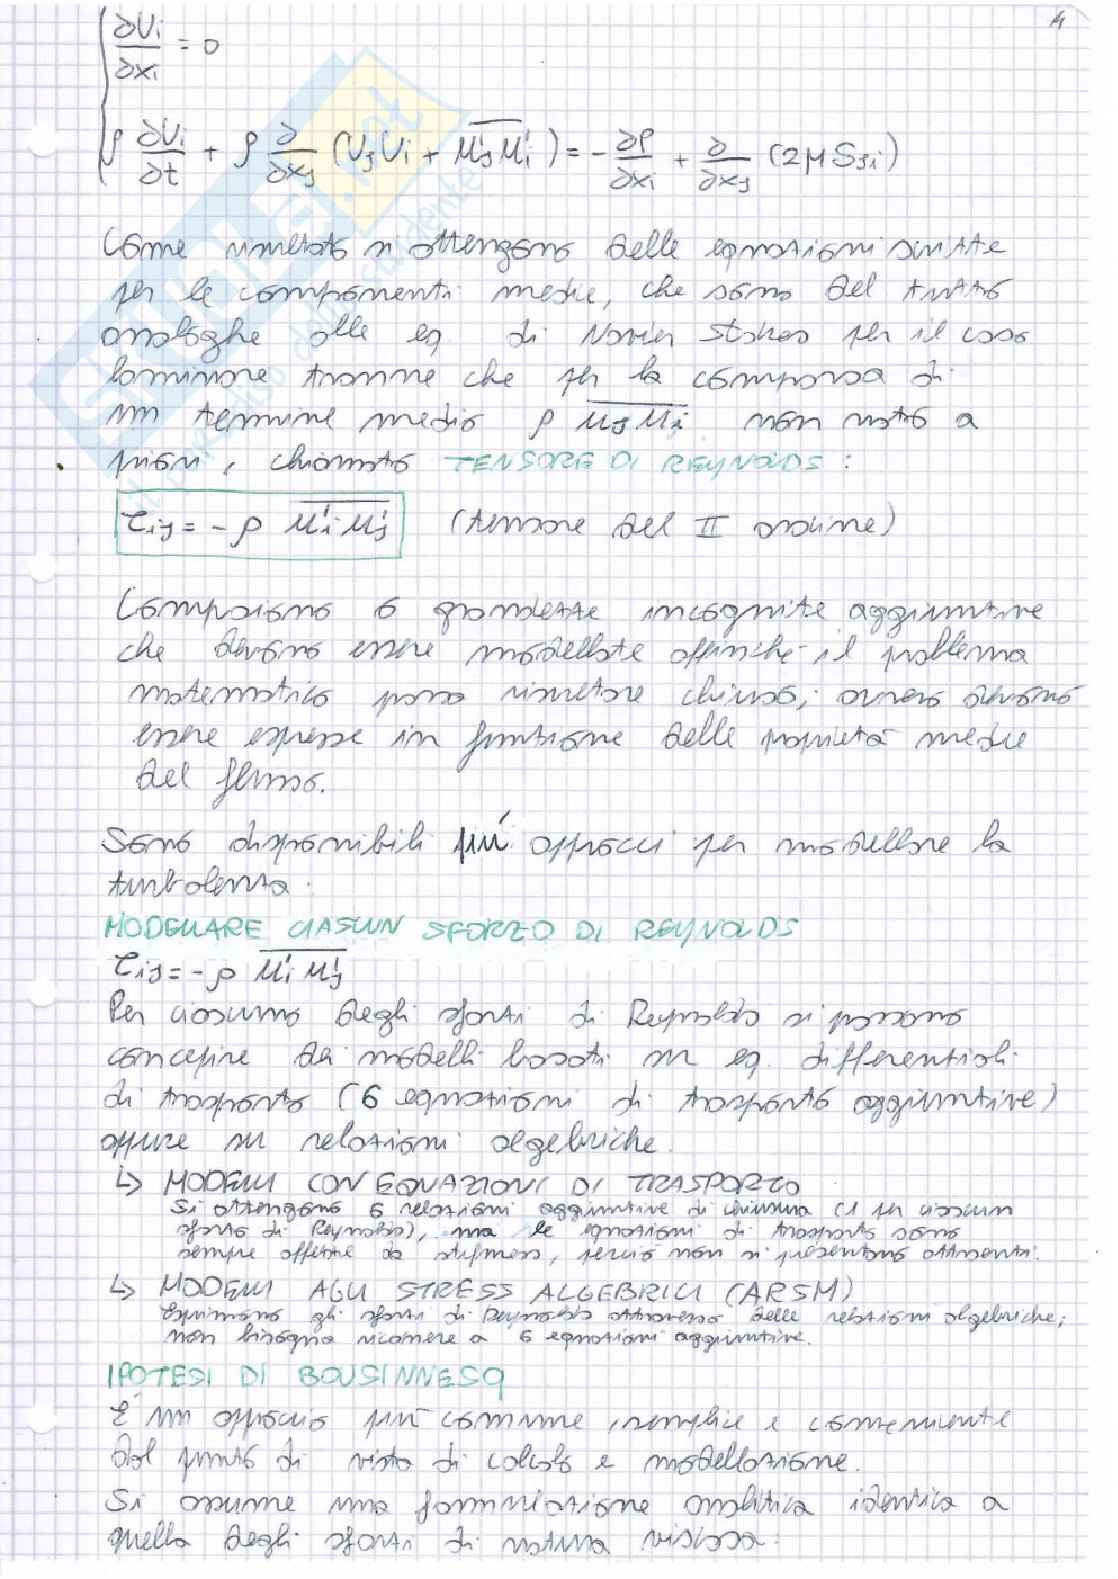 4
∂Ui/∂xi = 0
ρ ∂Ui/∂t + ρ ∂/∂xj (UjUi + u'ju'i) = - ∂P/∂xi + ∂/∂xj (2μSji)
Come risultato si ottengono delle equazioni scritte
per le componenti medie, che sono del tutto
analoghe alle eq di Navier Stokes per il caso
laminare tranne che per la comparsa di
un termine medio ρ u'ju'i non noto a
priori, chiamato TENSORE DI REYNOLDS:
τij = - ρ u'iu'j (tensore del II ordine)
Compaiono 6 grandezze incognite aggiuntive
che devono essere modellate affinché il problema
matematico possa risultare chiuso; ovvero devono
essere espresse in funzione delle proprietà medie
del flusso.
Sono disponibili più approcci per modellare la
turbolenza.
MODELLARE CIASCUN SFORZO DI REYNOLDS
τij = - ρ u'iu'j
Per ciascuno degli sforzi di Reynolds si possono
concepire dei modelli basati su eq. differenziali
di trasporto (6 equazioni di trasporto aggiuntive)
oppure su relazioni algebriche.
↳ MODELLI CON EQUAZIONI DI TRASPORTO
Si ottengono 6 relazioni aggiuntive di chiusura (1 per ciascun
sforzo di Reynolds), ma le equazioni di trasporto sono
sempre affette da stifness, perciò non si presentano attraenti.
↳ MODELLI AGLI STRESS ALGEBRICI (ARSM)
Esprimono gli sforzi di Reynolds attraverso delle relazioni algebriche;
non bisogna ricorrere a 6 equazioni aggiuntive.
IPOTESI DI BOUSINNESQ
È un approccio più comune, semplice e conveniente
dal punto di vista di calcolo e modellazione.
Si assume una formulazione analitica identica a
quella degli sforzi di natura viscosa.
SKUOLA.net
il portale dello studente